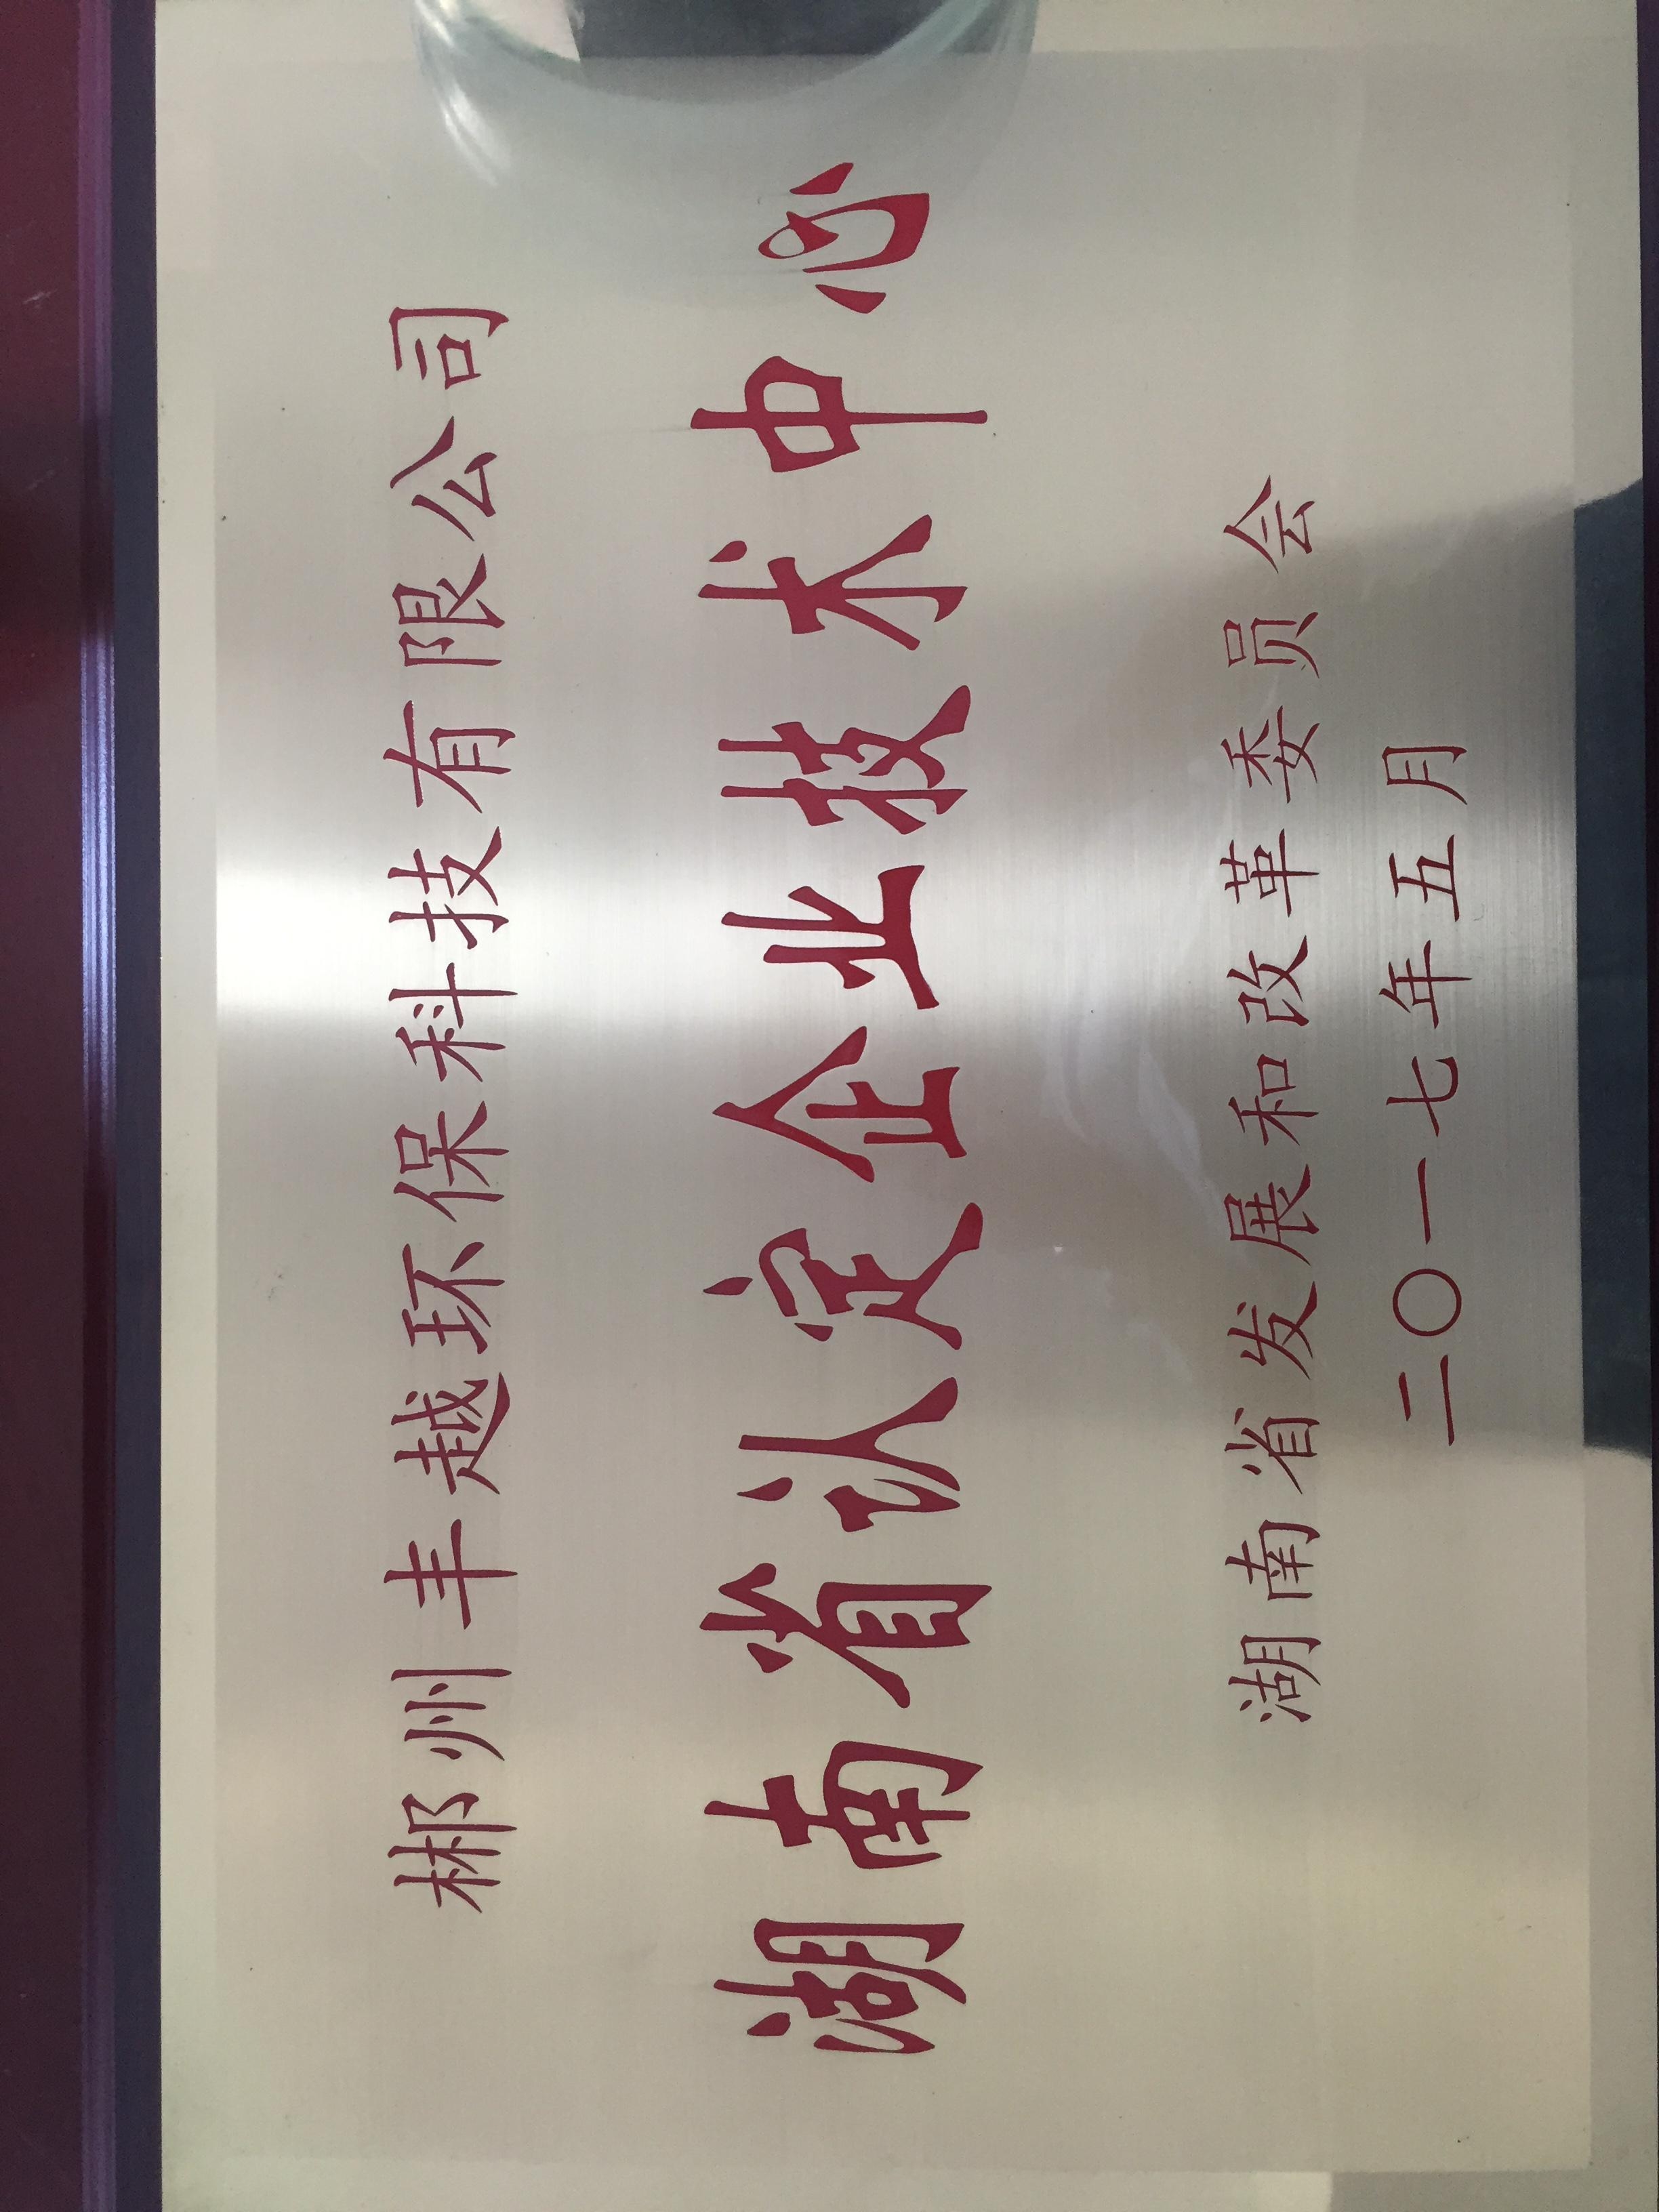 郴州丰越环保科技有限公司
湖南省认定企业技术中心
湖南省发展和改革委员会
二〇一七年五月